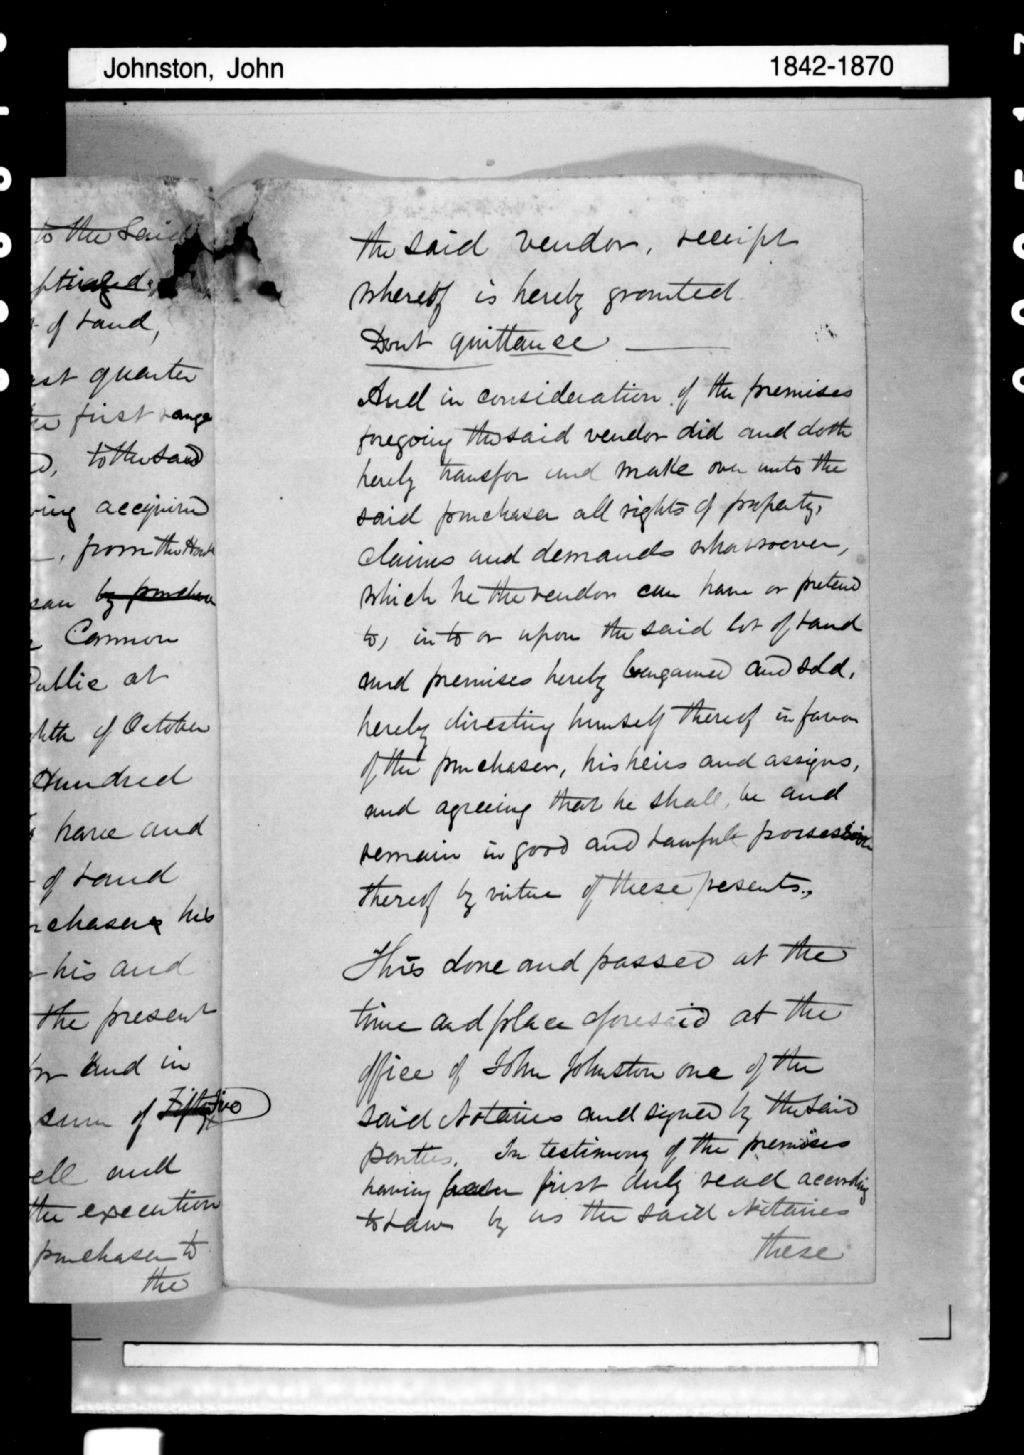 Johnston, John 1842-1870
to the Said
of Land,
quarter
first range
to the said
acquired
, from the
by purchase
Common
Public at
of October
Hundred
have and
of Land
his
his and
the present
and in
sum of Fifty Five
and
the execution
purchaser to
the
the said vendor, receipt
whereof is hereby granted
Dont quittance
And in consideration of the premises
foregoing the said vendor did and doth
hereby transfer and make over unto the
said purchaser all rights of property,
claims and demands whatsoever,
which he the vendor can have or pretend
to, in to or upon the said lot of Land
and premises hereby bargained and sold,
hereby divesting himself thereof in favor
of the purchaser, his heirs and assigns,
and agreeing that he shall, be and
remain in good and Lawfull possession
thereof by virtue of these presents.,
This done and passed at the
time and place aforesaid at the
office of John Johnston one of the
said Notaries and signed by the said
parties. In testimony of the premises
having been first duly read according
to Law by us the said Notaries
these